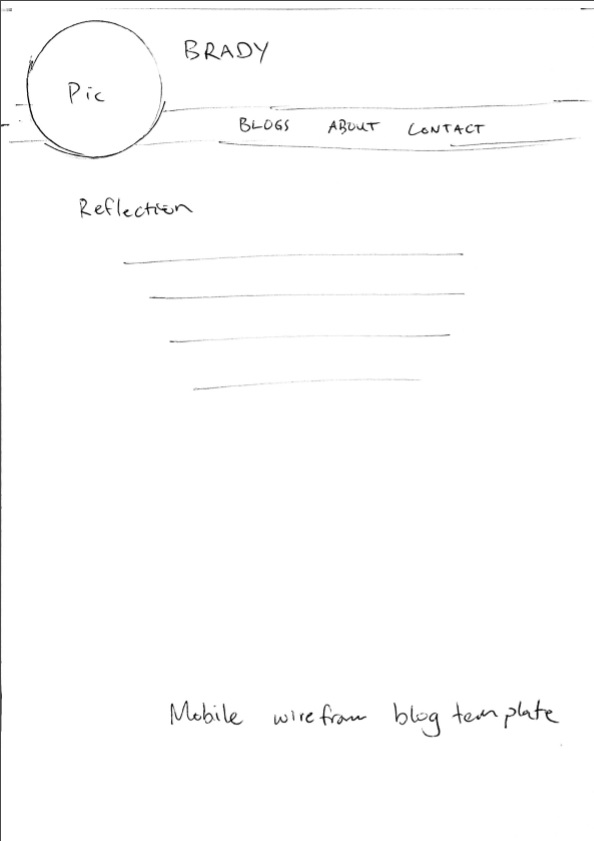 BRADY
Pic
BLOGS ABOUT CONTACT
Reflection
Mobile wirefram blog template